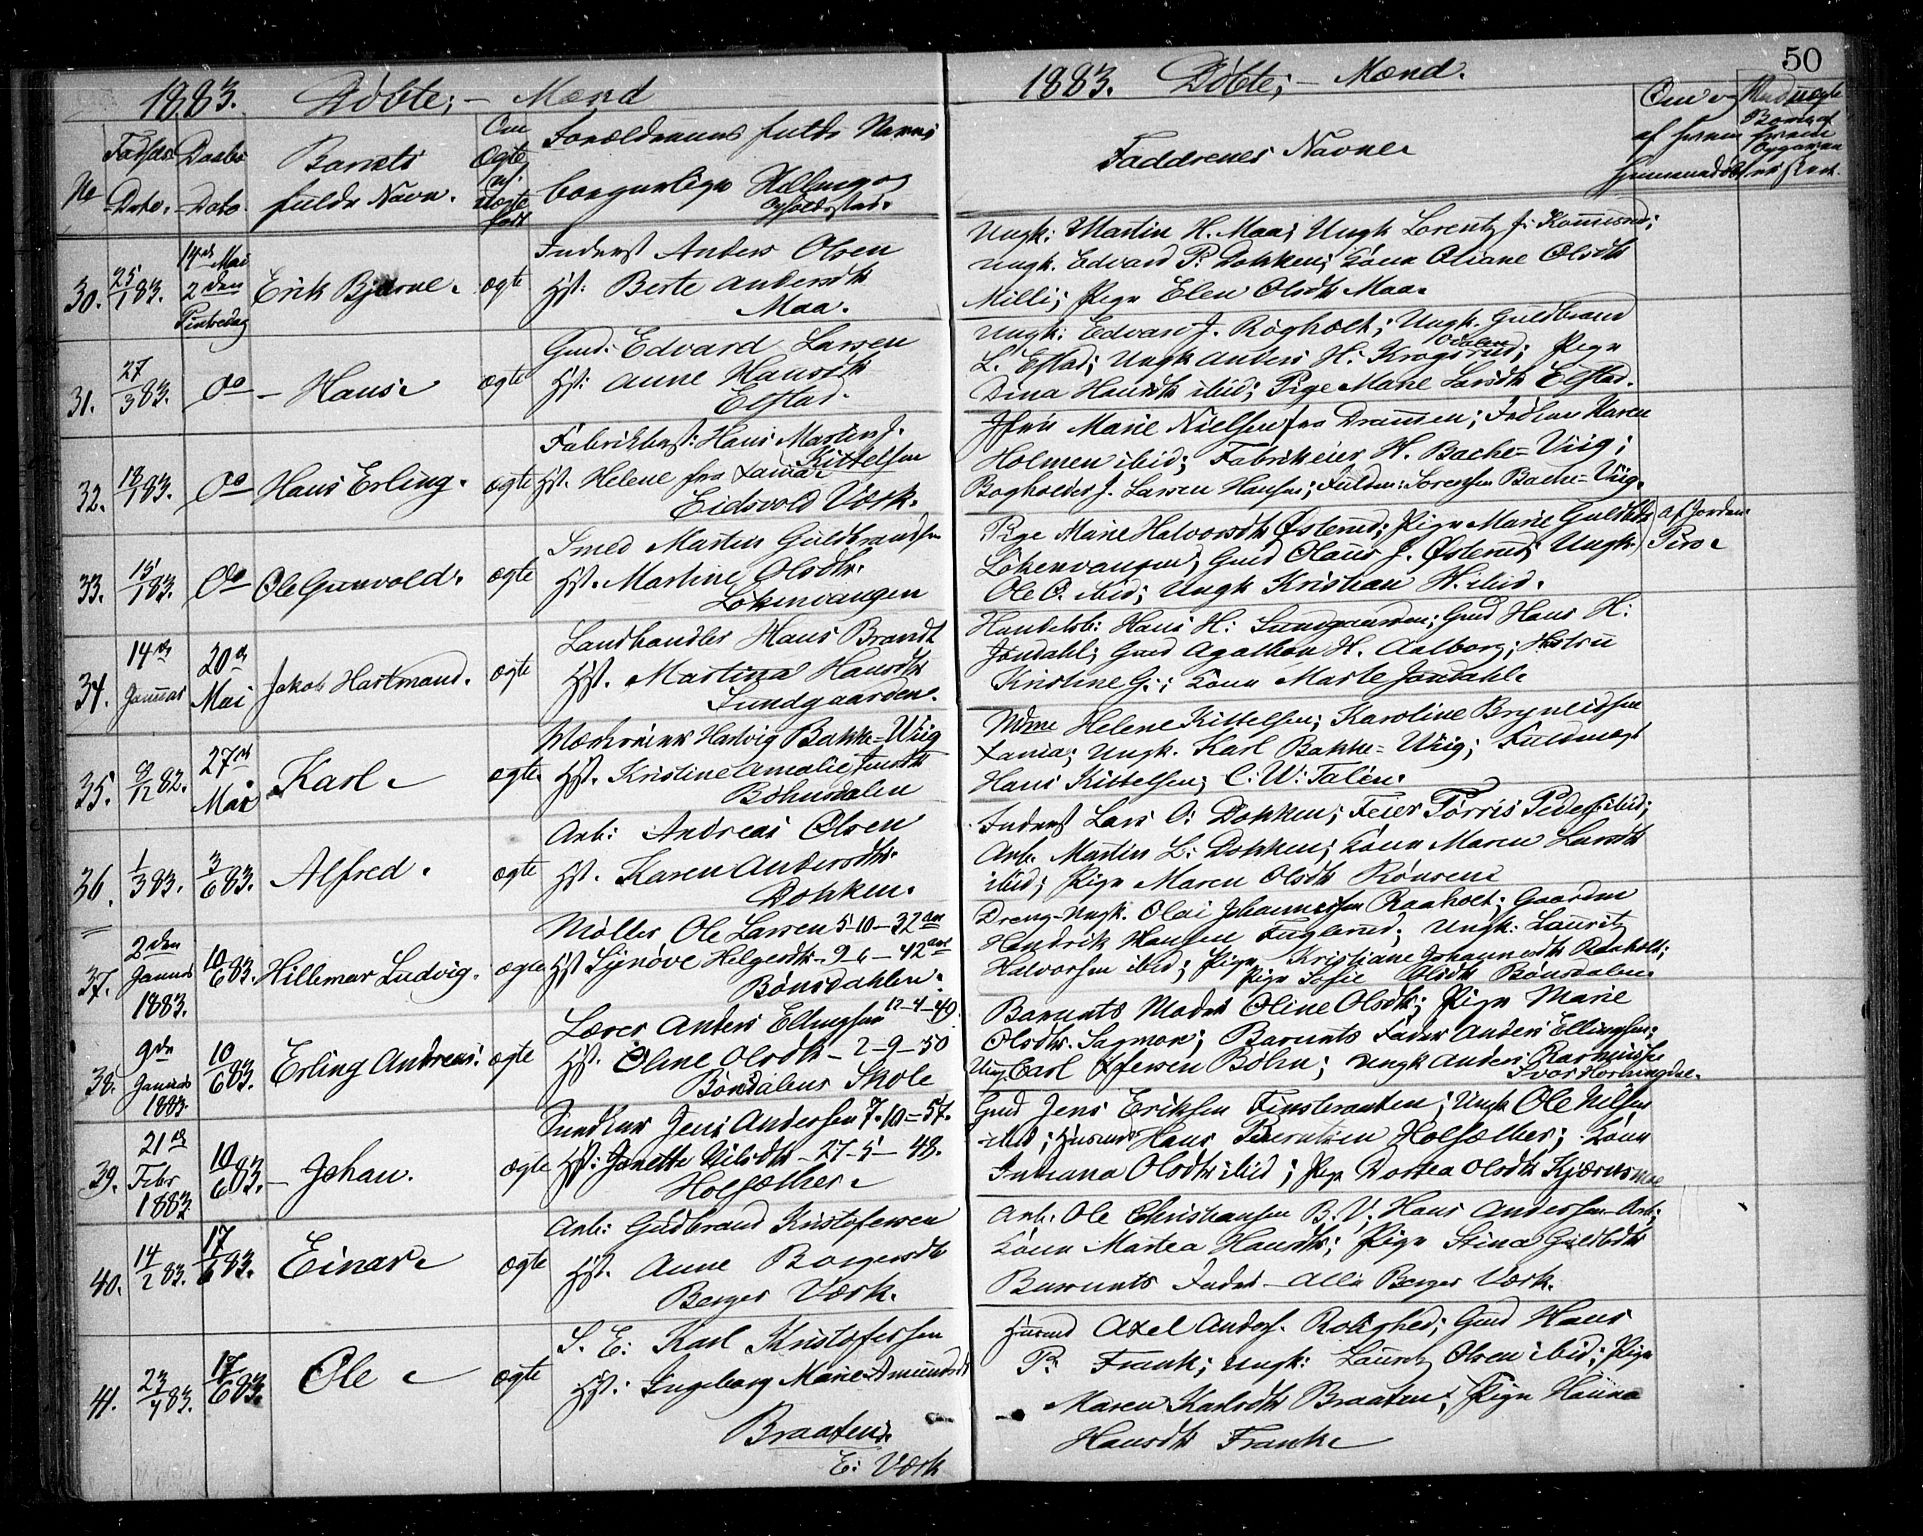 1883. Döbte; - Mænd
No
Fødsels Dato.
Daabs Dato.
Barnets
fulde Navn.
Om
Ægte
el.
Uægte
født
Forældrenes fulde Navne
borgerlige Stilling og
Opholdssted.
30. 25/1 83. 14de Mai 2den Pintsedag Erik Bjarne. ægte
Inderst Anders Olsen
Hst: Berte Andersdt
Maa.
31. 27/3 83. Do - Hans. ægte
Gmd: Edvard Larsen
Hst: Anne Hansdt
Elstad.
32. 18/1 83. Do Hans Erling. ægte
Fabrikbest: Hans Martin J.
Kittelsen
Hst. Helene fra
Eidsvold Værk.
33. 15/1 83. Do Ole Gunvold. ægte
Smed Martin Guldbrandsen
Hst. Martine Olsdt.
Lökenvangen
34. 14de Januar 20de Mai Jakob Hartmand. ægte
Landhandler Hans Brandt
Hst. Martina Hansdt
Sundgaarden.
35. 9/12 82. 27de Mai Karl. ægte
Hartvig Bakke-Wiig
Hst. Kristine Amalie Jensdt
Böhnsdalen
36. 1/3 83. 3/6 83. Alfred. ægte
Arb: Andreas Olsen
Hst. Karen Andersdt.
Dokken.
37. 2den Januar 1883. 10/6 83. Hillemar Ludvig. ægte
Møller Ole Larsen 5-10-32
Hst Synöve Helgesdt. 9-6-42
Bönsdahlen.
38. 9de Januar 1883. 10/6 83. Erling Andreas. ægte
Lærer Anders Ellingsen 12-4-49
Hst. Oline Olsdt - 2-9-50
Bönsdalens Skole
39. 21de Febr 1883 10/6 83. - Johan. ægte
Jens Andersen 7-10-57.
Hst: Janette Nilsdt - 27-5-48.
Holsæther.
40. 14/2 83. 17/6 83. Einar. ægte
Arb: Guldbrand Kristofersen
Hst. Anne Borgersdt
Berger Værk.
41. 23/4 83. 17/6 83. Ole ægte
S. E: Karl Kristofersen
Hst: Ingeborg Marie Amundsdt
Braaten.
E: Værk
50
1883. Döbte; - Mænd.
Faddrenes Navne
Ungk: Martin H. Maa; Ungk Lorentz J. ;
Ungk. Edvard P. Dokken; Kone Oliane Olsdt
Milli; Pige Elen Olsdt Maa.
Ungk: Edvard J. Rögholt; Ungk. Guldbrand
L. Elstad; Ungk Anders H. Krogsrud; Pige
Dina Hansdt ibid; Pige Marie Larsdt Elstad.
Marie Nielsen fra Drammen; Karen
Holmen ibid; Fabrikeier H. Bache-Wiig;
Bogholder J. Larsen Hansen; Sørensen Bache-Wiig.
Pige Marie Halvorsdt Österud; Pige Marie Guldbdt af Jordem:
Lökenvangen; Gmd Olaus J. Österud; Ungk.
Ole O. ibid; Ungk Kristian H. ibid.
Handelsb: Hans H: Sundgaarden; Gmd Hans H:
Jöndahl; Gmd Agathon H. Aalborg; Hustru
Kristine G.; Kone Marte Jöndahl.
Mdme Helene Kittelsen; Karoline Brynildsen
; Ungk. Karl Bakke-Wiig; Fuldmægt
Hans Kittelsen; C. W. Talén.
Inderst Lars O: Dokken; Feier Törris Peders. ibid;
Arb. Martin L: Dokken; Kone Maren Larsdt
ibid; Pige Maren Olsdt Rönsen
Dreng-Ungk. Olai Johannessen Raaholt; Gaardm
Hendrik Hansen Fuglerud; Ungk: Lauritz
Halvorsen ibid; Pige Kristiane Johannesdt Raaholt;
Pige Sofie Olsdt Bönsdalen
Barnets Moder Oline Olsdt; Pige Marie
Olsdt. Sagmoen; Barnets Fader Anders Ellingsen;
Ung. Carl Ifversen Böhn; Ungk Anders Rasmussen
Gmd Jens Eriksen Finstbraaten; Ungk Ole Nilsen
ibid; Husmd Hans Berntsen Holsæther; Kone
Olsdt ibid; Pige Dortea Olsdt Kjærnsmoe
Arb. Ole Christiansen B. V; Hans Andersen Arb;
Kone Martea Hansdt; Pige Stina Guldbdt
Barnets Fader - Alle Berger Værk.
Husmd Axel Anders. Rolighed; Gmd Hans
P. Frank; Ungk: Lauritz Olsen ibid; Pige
Maren Karlsdt Braaten; Pige Hanna
Hansdt Frank